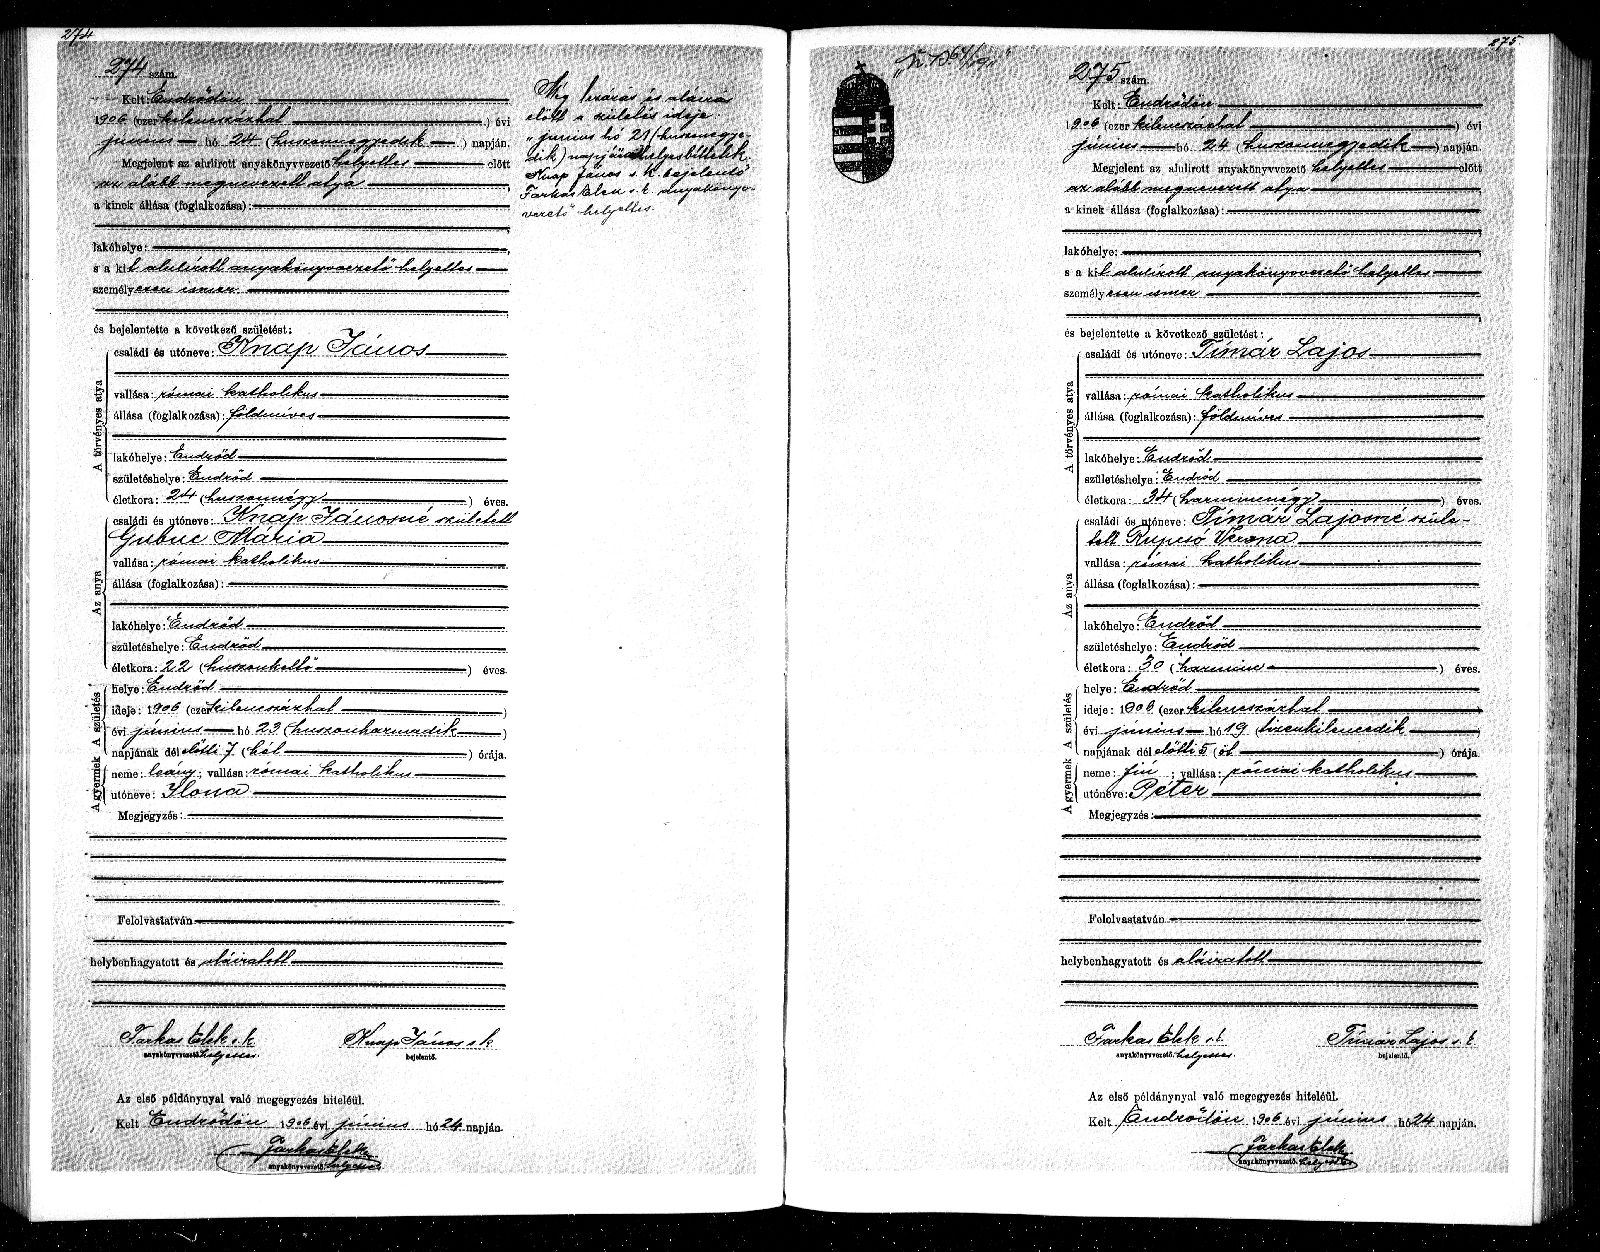 274
274 szám.
Kelt: Endrődön
1906 (ezerkilencszázhat) évi
június hó 24 (huszonnegyedik) napján.
Megjelent az alulirott anyakönyvvezető helyettes előtt
az alább megnevezett atya
a kinek állása (foglalkozása):
lakóhelye:
s a kit alulírott anyakönyvvezető helyettes
személyesen ismer
és bejelentette a következő születést:
A törvényes atya
családi és utóneve: Knap János
vallása: római katholikus
állása (foglalkozása): földmíves
lakóhelye: Endrőd
születéshelye: Endrőd
életkora: 24 (huszonnégy) éves.
Az anya
családi és utóneve: Knap Jánosné született
Gubuc Mária
vallása: római katholikus
állása (foglalkozása):
lakóhelye: Endrőd
születéshelye: Endrőd
életkora: 22 (huszonkettő) éves.
A születés
helye: Endrőd
ideje: 1906 (ezerkilencszázhat)
évi június hó 23 (huszonharmadik)
napjának dél előtti 7 (hét) órája.
A gyermek
neme: leány; vallása: római katholikus
utóneve: Ilona
Megjegyzés:
Felolvastatván
helybenhagyatott és aláiratott
Farkas Elek s. k. Knap János s k
anyakönyvvezető helyettes. bejelentő.
Az első példánynyal való megegyezés hiteléül.
Kelt Endrődön 1906 évi június hó 24 napján.
Farkas Elek
anyakönyvvezető helyettes
Még lezárás és aláirás
előtt a születés ideje
"június hó 21 (huszonegye-
dik) napjának helyesbittetik
Knap János s. k. bejelentő
Farkas Elek s. k. anyakönyv-
vezető helyettes.
275
275 szám.
Kelt: Endrődön
1906 (ezerkilencszázhat) évi
június hó 24 (huszonnegyedik) napján.
Megjelent az alulirott anyakönyvvezető helyettes előtt
az alább megnevezett atya
a kinek állása (foglalkozása):
lakóhelye:
s a kit alulírott anyakönyvvezető helyettes
személyesen ismer
és bejelentette a következő születést:
A törvényes atya
családi és utóneve: Tímár Lajos
vallása: római katholikus
állása (foglalkozása): földmíves
lakóhelye: Endrőd
születéshelye: Endrőd
életkora: 34 (harmincnégy) éves.
Az anya
családi és utóneve: Tímár Lajosné szüle-
tett Rupcsó Verona
vallása: római katholikus
állása (foglalkozása):
lakóhelye: Endrőd
születéshelye: Endrőd
életkora: 30 (harminc) éves.
A születés
helye: Endrőd
ideje: 1906 (ezerkilencszázhat)
évi június hó 19 (tizenkilencedik)
napjának dél előtti 5 (öt) órája.
A gyermek
neme: fiú; vallása: római katholikus
utóneve: Péter
Megjegyzés:
Felolvastatván
helybenhagyatott és aláiratott
Farkas Elek s. k. Tímár Lajos s. k.
anyakönyvvezető helyettes. bejelentő.
Az első példánynyal való megegyezés hiteléül.
Kelt Endrődön 1906 évi június hó 24 napján.
Farkas Elek
anyakönyvvezető helyettes